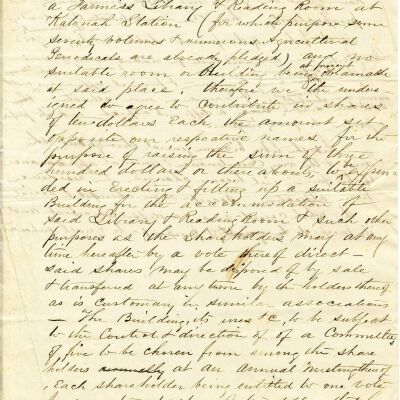 a Farmers Library & Reading Room at
Katonah Station (for which purpose some
seventy volumes & numerous Agricultural
Periodicals are already pledged) and no
suitable room or building being at present obtainable
at said place, therefore we the under-
signed do agree to contribute in shares
of ten dollars Each the amount set
opposite our respective names for the
purpose of raising the sum of three
hundred dollars or there abouts, to expen-
ded in Erecting & fitting up a suitable
Building for the accommodation of
said Library & Reading Room & such other
purposes as the Shareholders may at any
time hereafter by a vote thereof direct —
said shares may be disposed of by sale
& transferred at any time by the holders thereof
as is customary in similar associations
— The Building, its uses &c to be subject
to the Control & direction of of a Committee
of five to be chosen from among the share
holders annually at an annual Meeting thereof
Each shareholder being entitled to one vote